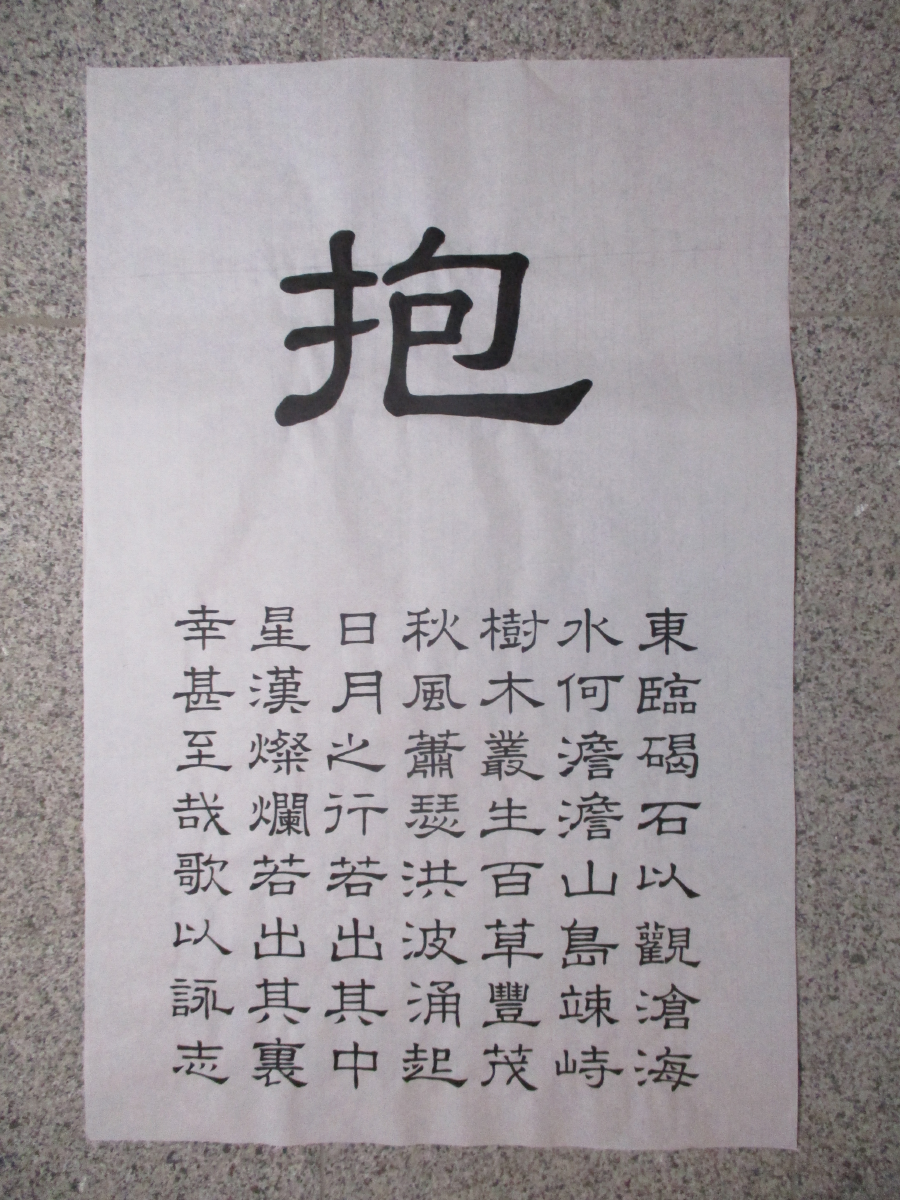 抱
東臨碣石以觀滄海
水何澹澹山島竦峙
樹木叢生百草豐茂
秋風蕭瑟洪波涌起
日月之行若出其中
星漢燦爛若出其裏
幸甚至哉歌以詠志